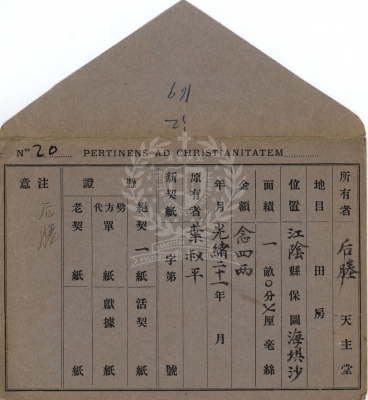 169
12
Nº 20 PERTINENS AD CHRISTIANITATEM
所有者 后塍 天主堂
地目 田房
位置 江陰縣保圖海壩沙
面積 一畝0分〤厘毫絲
金額 念四兩
年月 光緒二十一年 月
原有者 葉叔平
新契紙 字第 號
憑證 絕契 一紙 活契 紙
代方單 紙 獻據 紙
老契 紙 紙
注意 后塍